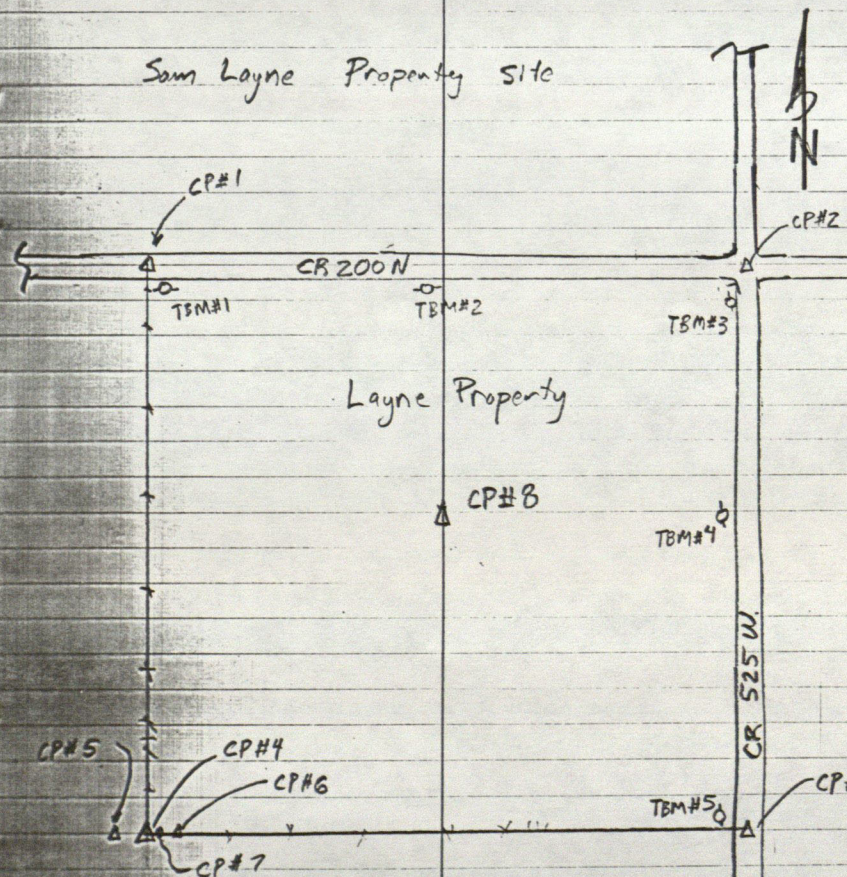 Sam Layne Property Site
N
CP#1
CP#2
CR 200 N
TBM#1
TBM#2
TBM#3
Layne Property
CP#8
TBM#4
CR 525 W.
CP#5
CP#4
CP#6
TBM#5
CP#7